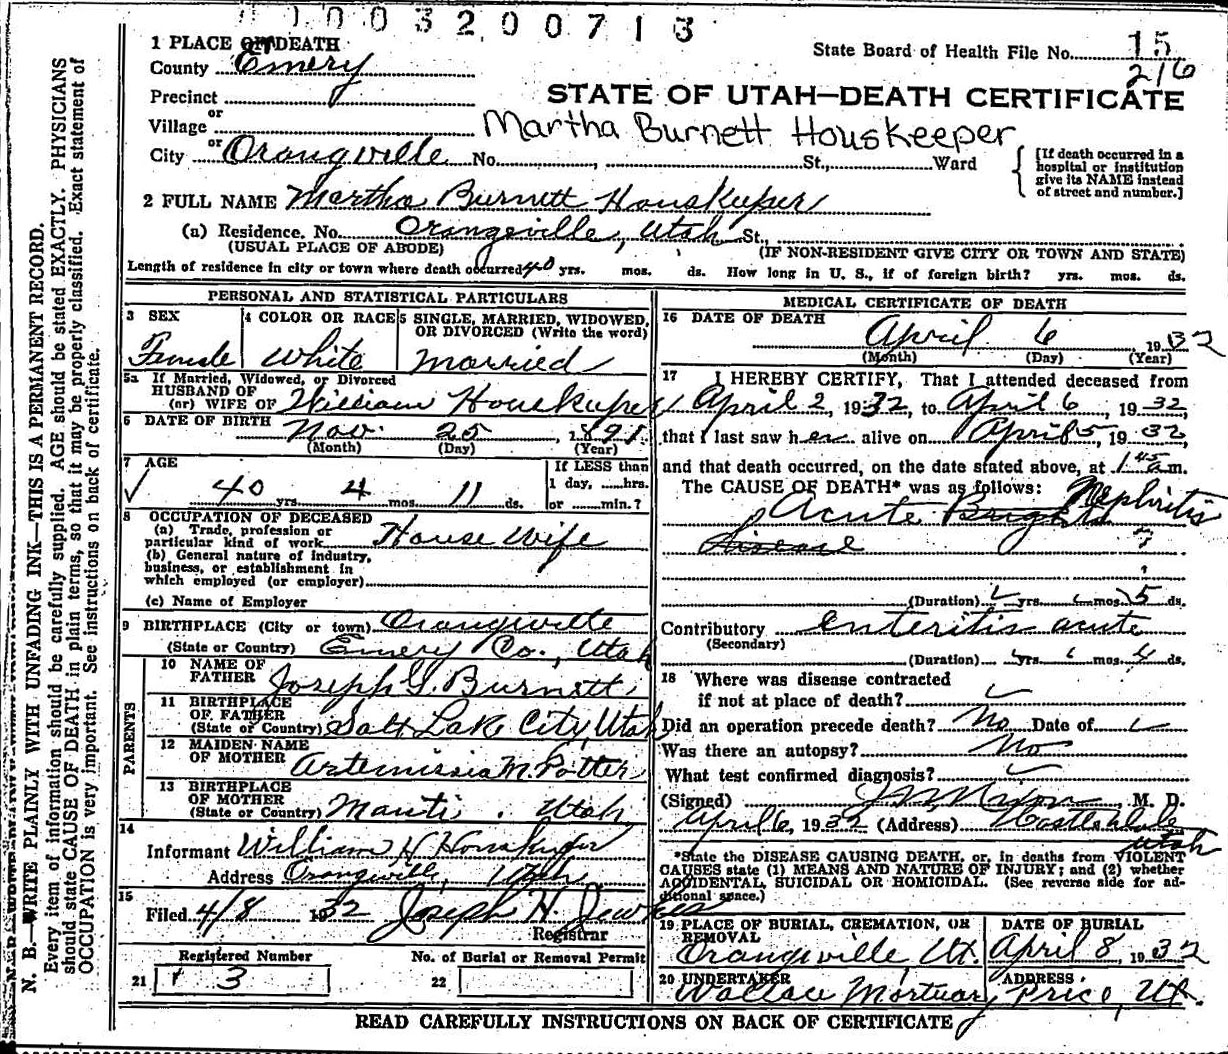 0 1 0 0 3 2 0 0 7 1 3
1 PLACE OF DEATH
State Board of Health File No. 15
County Emery
216
Precinct
STATE OF UTAH—DEATH CERTIFICATE
or
Village
Martha Burnett Houskeeper
or
City Orangville No. , St., Ward
[If death occurred in a
hospital or institution
give its NAME instead
of street and number.]
2 FULL NAME Martha Burnett Houskeeper
(a) Residence. No. Orangeville, Utah St.,
(USUAL PLACE OF ABODE) (IF NON-RESIDENT GIVE CITY OR TOWN AND STATE)
Length of residence in city or town where death occurred 40 yrs. mos. ds. How long in U. S., if of foreign birth? yrs. mos. ds.
PERSONAL AND STATISTICAL PARTICULARS
3 SEX
Female
4 COLOR OR RACE
White
5 SINGLE, MARRIED, WIDOWED,
OR DIVORCED (Write the word)
Married
5a If Married, Widowed, or Divorced
HUSBAND OF
(or) WIFE OF William Houskeeper
6 DATE OF BIRTH Nov. 25, 1891
(Month) (Day) (Year)
7 AGE
40 yrs. 4 mos. 11 ds.
If LESS than
1 day, ......hrs.
or ......min.?
8 OCCUPATION OF DECEASED
(a) Trade, profession or
particular kind of work House Wife
(b) General nature of industry,
business, or establishment in
which employed (or employer)
(c) Name of Employer
9 BIRTHPLACE (City or town) Orangeville
(State or Country) Emery Co., Utah
PARENTS
10 NAME OF
FATHER Joseph G. Burnett
11 BIRTHPLACE
OF FATHER
(State or Country) Salt Lake City, Utah
12 MAIDEN NAME
OF MOTHER Artemissia M. Potter
13 BIRTHPLACE
OF MOTHER
(State or Country) Manti, Utah
14
Informant William H Houskeeper
Address Orangeville, Utah
15
Filed 4/8 1932 Joseph H. Jewkes
Registrar
Registered Number
21 3
No. of Burial or Removal Permit
22
MEDICAL CERTIFICATE OF DEATH
16 DATE OF DEATH
April 6 1932
(Month) (Day) (Year)
17 I HEREBY CERTIFY, That I attended deceased from
April 2, 1932, to April 6, 1932,
that I last saw her alive on April 5, 1932,
and that death occurred, on the date stated above, at 1 45 a.m.
The CAUSE OF DEATH* was as follows:
Acute Brights Nephritis
Disease
(Duration) yrs. mos. 5 ds.
Contributory Enteritis acute
(Secondary)
(Duration) yrs. mos. 4 ds.
18 Where was disease contracted
if not at place of death?
Did an operation precede death? No Date of
Was there an autopsy? No
What test confirmed diagnosis?
(Signed) Nixon, M. D.
April 6, 1932 (Address) Castledale
Utah
*State the DISEASE CAUSING DEATH, or, in deaths from VIOLENT
CAUSES state (1) MEANS AND NATURE OF INJURY; and (2) whether
ACCIDENTAL, SUICIDAL OR HOMICIDAL. (See reverse side for ad-
ditional space.)
19 PLACE OF BURIAL, CREMATION, OR
REMOVAL
Orangeville, Ut.
DATE OF BURIAL
April 8, 1932
20 UNDERTAKER
Wallace Mortuary
ADDRESS
Price, Ut.
READ CAREFULLY INSTRUCTIONS ON BACK OF CERTIFICATE
N. B.—WRITE PLAINLY WITH UNFADING INK—THIS IS A PERMANENT RECORD.
Every item of information should be carefully supplied. AGE should be stated EXACTLY. PHYSICIANS
should state CAUSE OF DEATH in plain terms, so that it may be properly classified. Exact statement of
OCCUPATION is very important. See instructions on back of certificate.